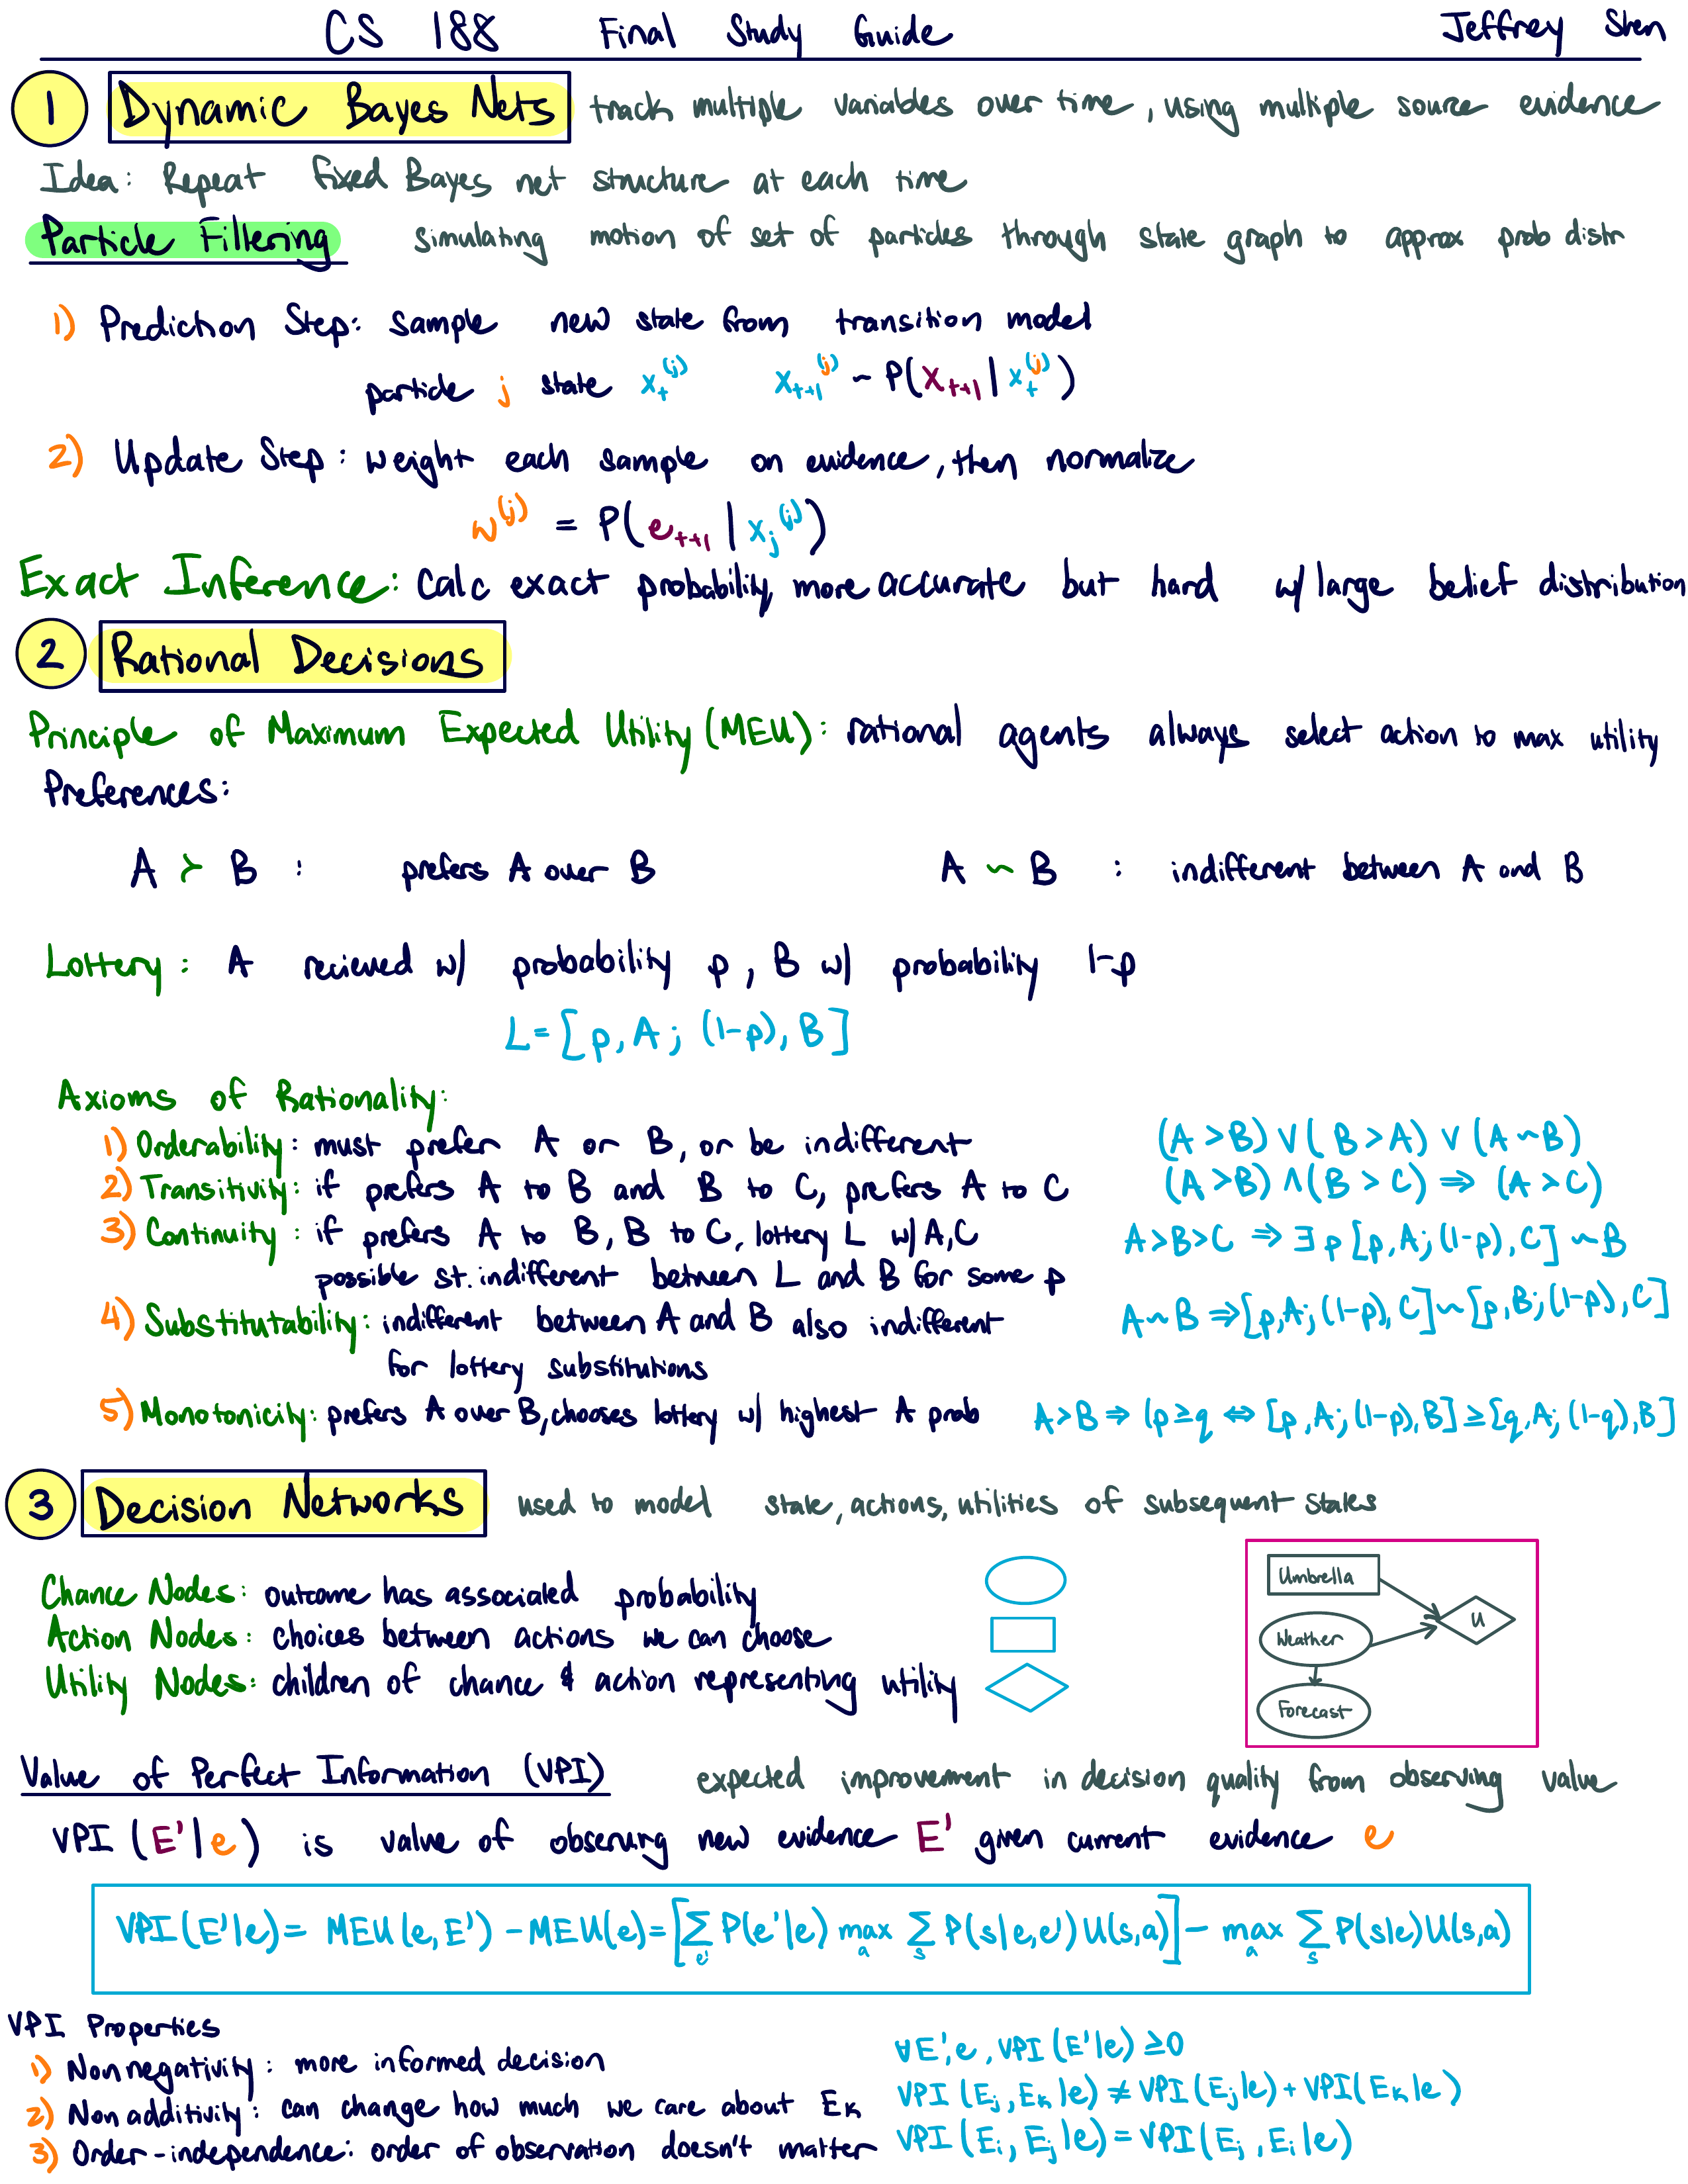 CS 188 Final Study Guide Jeffrey Shen
1 Dynamic Bayes Nets track multiple variables over time, using multiple source evidence
Idea: Repeat fixed Bayes net structure at each time
Particle Filtering simulating motion of set of particles through state graph to approx prob distr
1) Prediction Step: sample new state from transition model
particle j state x_t^(j) x_{t+1}^(j) ~ P(X_{t+1} | x_t^(j))
2) Update Step: weight each sample on evidence, then normalize
w^(j) = P(e_{t+1} | x_j^(j))
Exact Inference: Calc exact probability, more accurate but hard w/ large belief distribution
2 Rational Decisions
Principle of Maximum Expected Utility (MEU): rational agents always select action to max utility
Preferences:
A ≻ B : prefers A over B A ~ B : indifferent between A and B
Lottery: A recieved w/ probability p, B w/ probability 1-p
L = [p, A; (1-p), B]
Axioms of Rationality:
1) Orderability: must prefer A or B, or be indifferent (A > B) ∨ (B > A) ∨ (A ~ B)
2) Transitivity: if prefers A to B and B to C, prefers A to C (A > B) ∧ (B > C) ⇒ (A > C)
3) Continuity: if prefers A to B, B to C, lottery L w/ A,C A > B > C ⇒ ∃ p [p, A; (1-p), C] ~ B
possible st. indifferent between L and B for some p
4) Substitutability: indifferent between A and B also indifferent A ~ B ⇒ [p, A; (1-p), C] ~ [p, B; (1-p), C]
for lottery substitutions
5) Monotonicity: prefers A over B, chooses lottery w/ highest A prob A > B ⇒ (p ≥ q ⇔ [p, A; (1-p), B] ≥ [q, A; (1-q), B]
3 Decision Networks used to model state, actions, utilities of subsequent states
Chance Nodes: outcome has associated probability
Action Nodes: choices between actions we can choose
Utility Nodes: children of chance & action representing utility
Umbrella
U
Weather
Forecast
Value of Perfect Information (VPI) expected improvement in decision quality from observing value
VPI (E' | e) is value of observing new evidence E' given current evidence e
VPI(E'|e) = MEU(e, E') - MEU(e) = [∑_{e'} P(e'|e) max_a ∑_s P(s|e,e') U(s,a)] - max_a ∑_s P(s|e) U(s,a)
VPI Properties
1) Nonnegativity: more informed decision ∀E', e, VPI (E'|e) ≥ 0
2) Non additivity: can change how much we care about E_k VPI (E_j, E_k|e) ≠ VPI (E_j|e) + VPI (E_k|e)
3) Order-independence: order of observation doesn't matter VPI (E_i, E_j|e) = VPI (E_j, E_i|e)